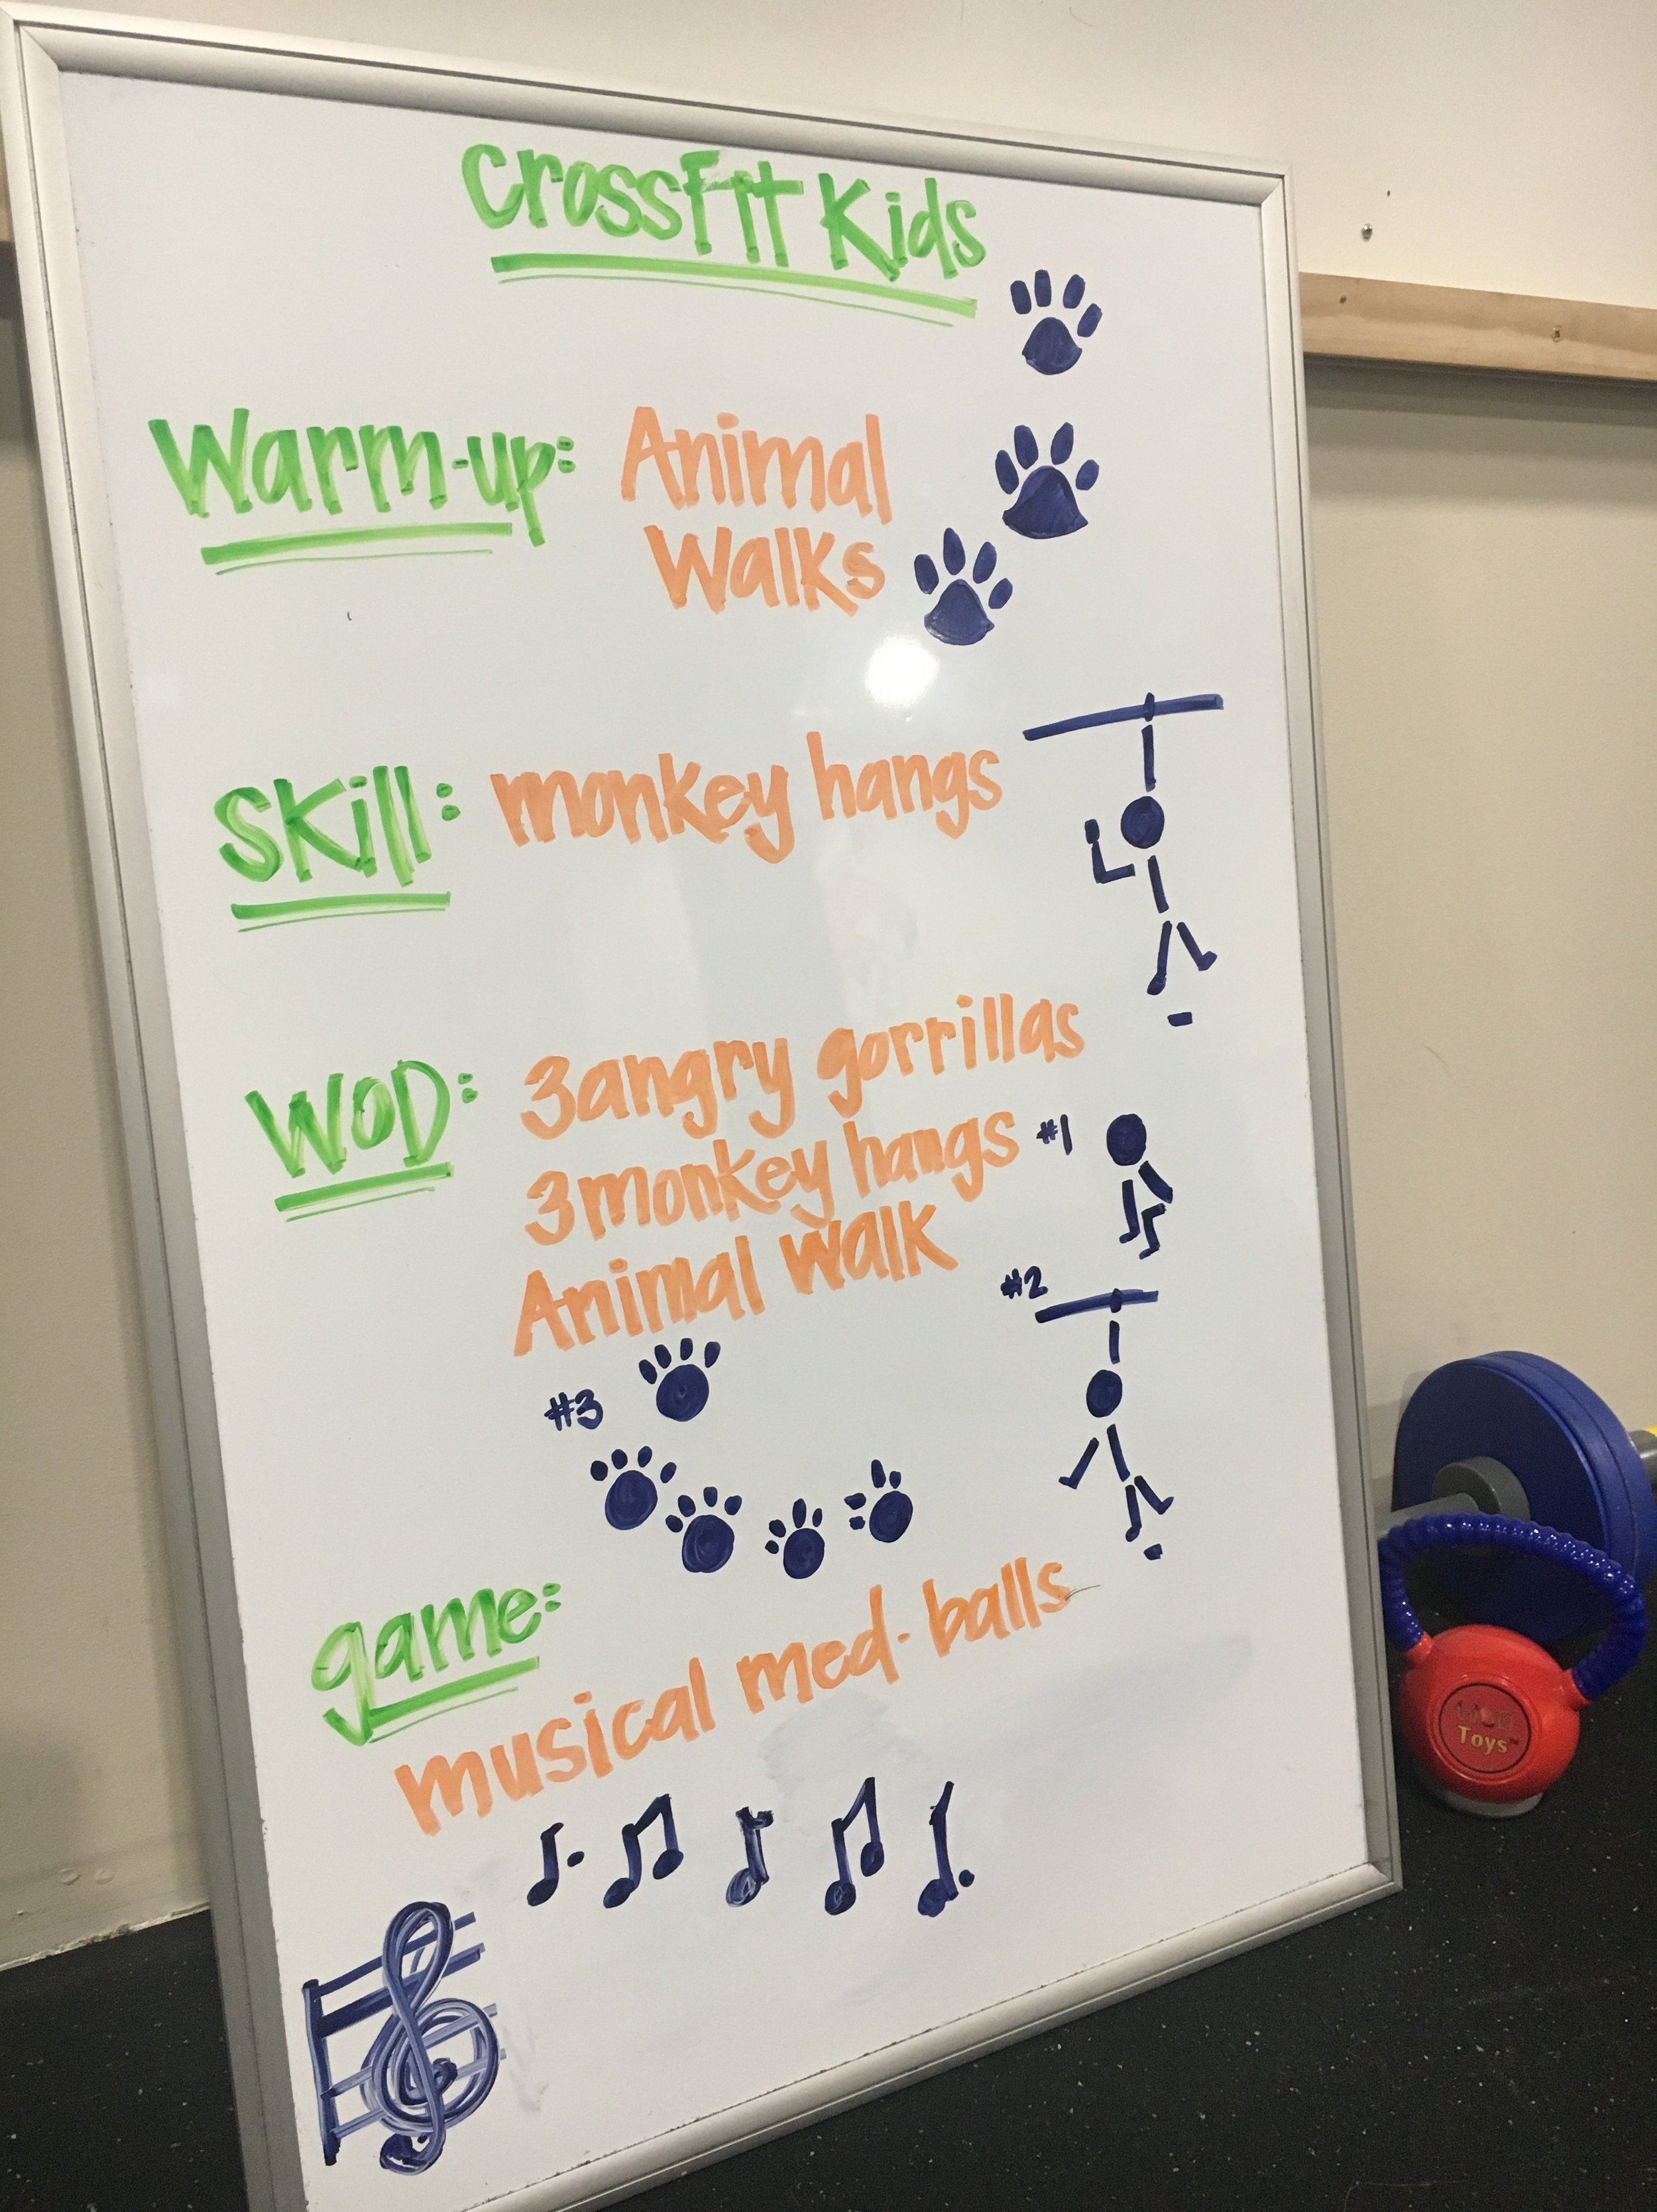 CrossFit Kids
Warm-up: Animal
Walks
Skill: monkey hangs
WOD: 3 angry gorrillas
3 monkey hangs #1
Animal walk
#2
#3
game:
musical med-balls
Toys™